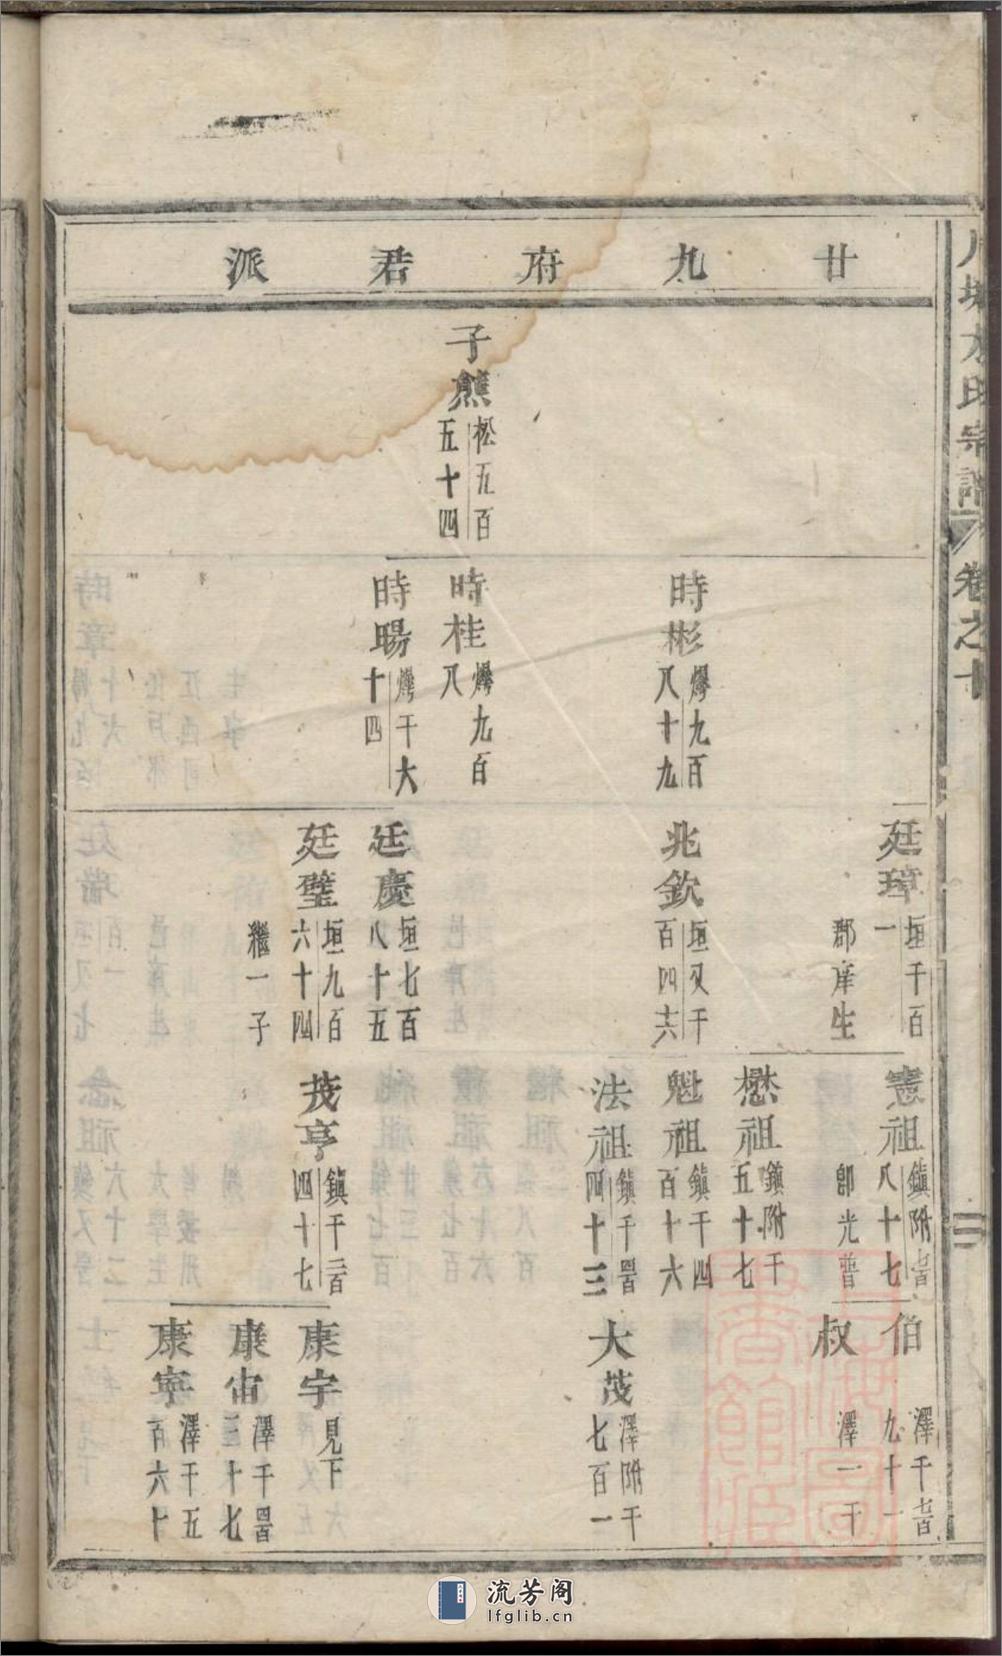 廿九府君派
子熊 松五百五十四
時彬 燡九百八十九
時桂 燡九百八
時暘 燡千六十四
廷璋 垣千百一
郡庠生
兆欽 垣又千百四六
廷慶 垣七百八十五
廷璧 垣九百六十四
繼一子
憲祖 鎮附七百八十七
郎光普
懋祖 鎮附千五十七
魁祖 鎮千四百十六
法祖 鎮千四百四十三
茂亨 鎮千二百四十七
伯 澤千七百九十一
叔 澤一千
大茂 澤附千七百一
康宇 見下
康宙 澤千四百三十七
康寧 澤千五百六十
方氏宗譜
卷之十
二
流芳阁
lfglib.cn